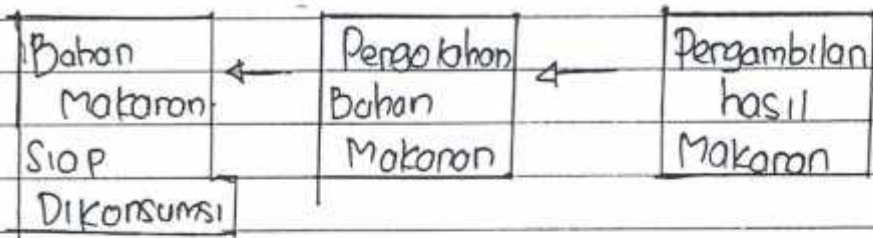 Bahan
Makanan
Siap
Dikonsumsi
Pengolahan
Bahan
Makanan
Pengambilan
hasil
Makanan